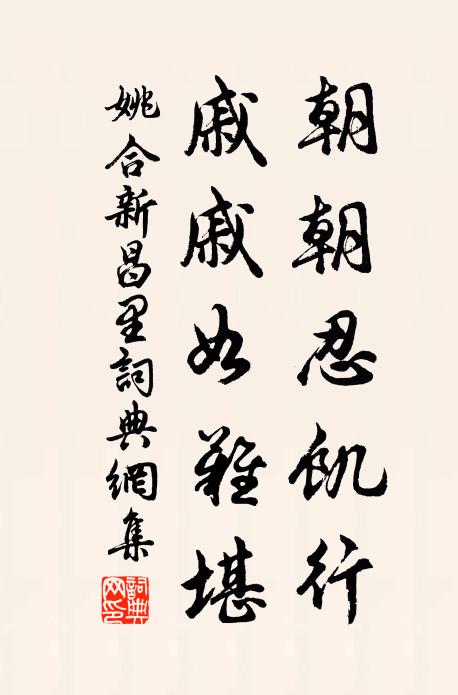 朝朝忍飢行
戚戚如難堪
姚合新昌里詞典網集
詞典網印